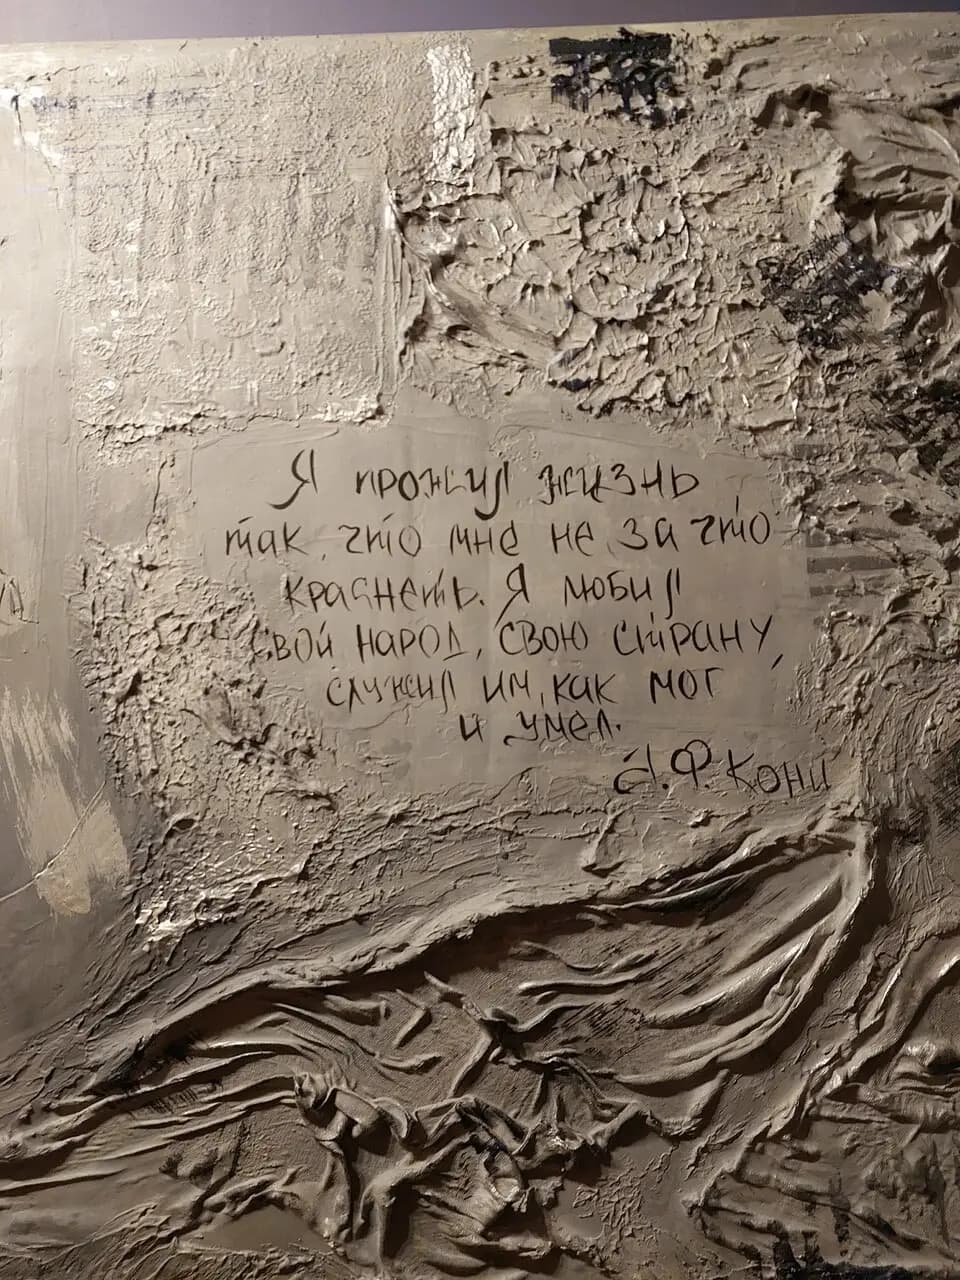 Я прожил жизнь
так, что мне не за что
краснеть. Я любил
свой народ, свою страну,
служил им, как мог
и умел.
А.Ф. Кони